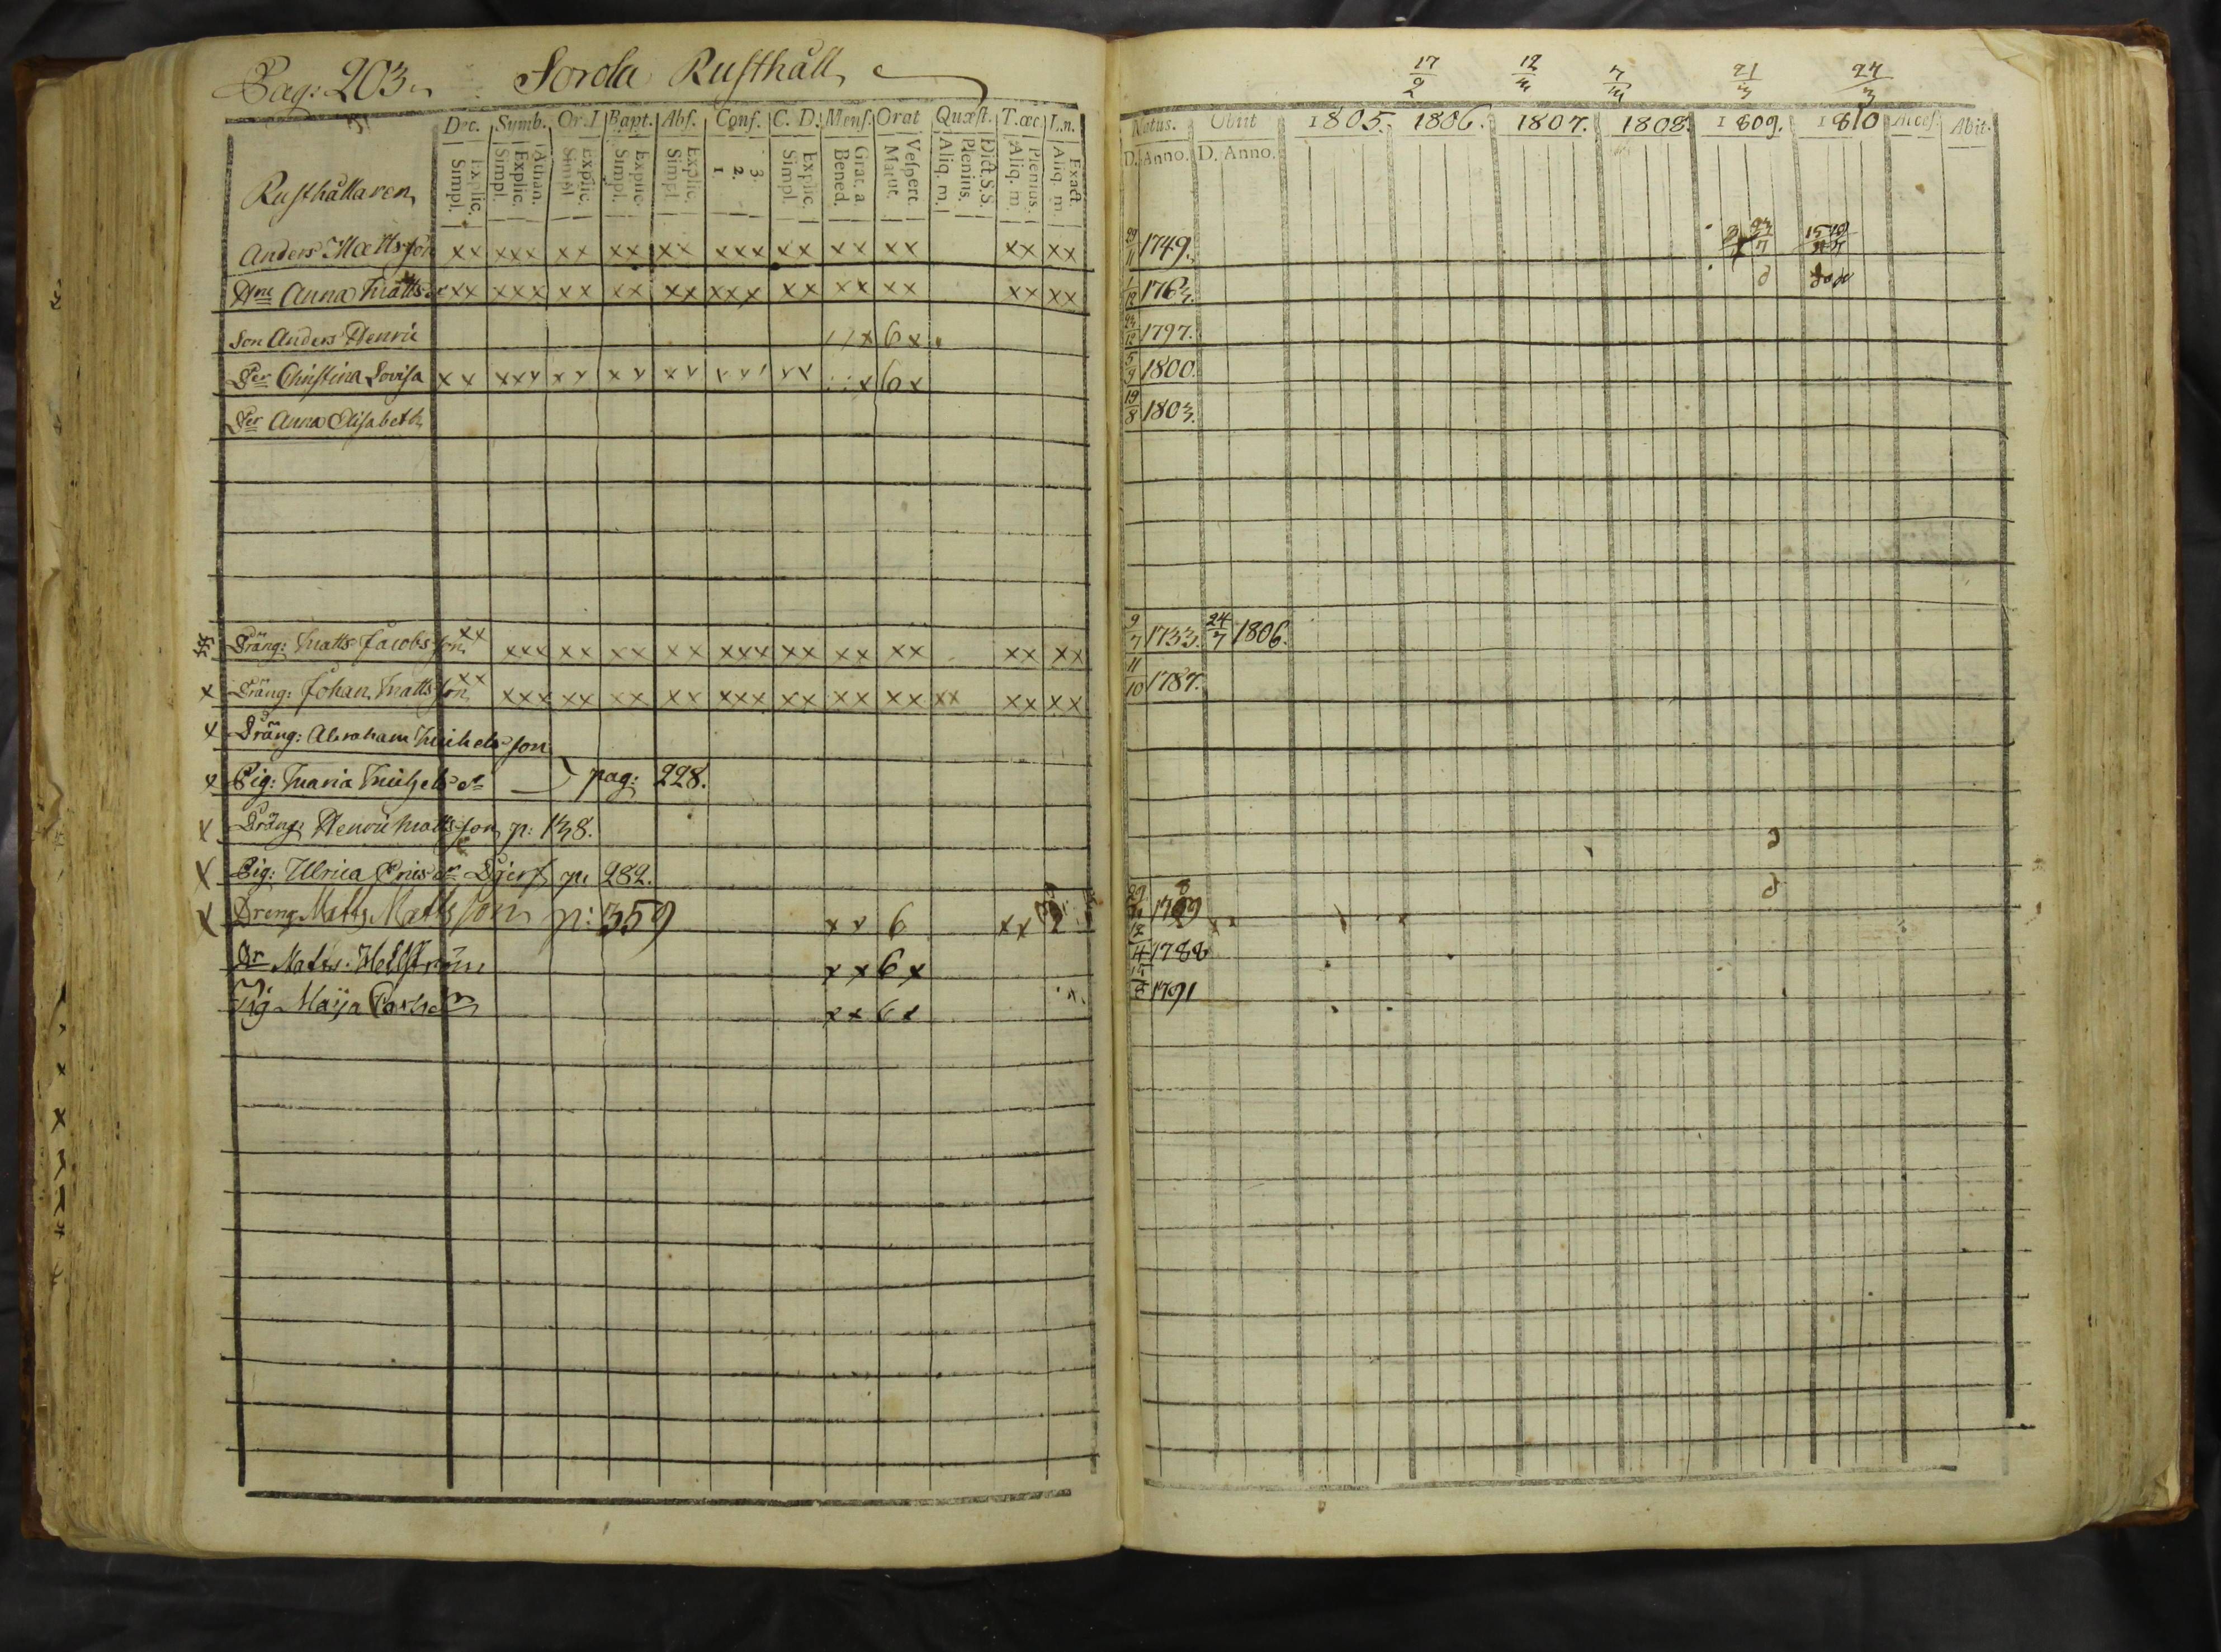 Pag: 203. Sorola Rusthåll
Dec. Symb. Or.J Bapt. Abs. Conf. C. D. Mens. Orat Quæst. T.œc. L.n.
Simpl. Explic. Simpl. Explic. Athan. Simpl. Explic. Simpl. Explic. Simpl. Explic. 1 2. 3. Simpl. Explic. Bened. Grat. a Matut. Vespert. Aliq. m. Plenius. Dict.S.S. Aliq. m. Plenius. Aliq. m. Exact.
Rusthållaren
Anders Mattsson xx xxx xx xx xx xxx xx xx xx xx xx
Hru Anna Matts dr xx xxx xx xx xx xxx xx xx xx xx xx
Son Anders Henric x 6 x
Der Christina Lovisa xx xxx xx xx xx xx xx x 6 x
Der Anna Elisabeth
Dräng: Matts Jacobsson xx xxx xx xx xx xxx xx xx xx xx xx
x Dräng: Johan Mattsson xx xxx xx xx xx xxx xx xx xx xx xx xx
x Dräng: Abraham Michelsson
x Pig: Maria Michels dr pag: 228.
x Dräng Henric Mattsson p: 138.
x Pig: Ulrica Ericsdr Djerf p: 282.
x Dreng Matts Mattsson p: 359 xx 6 xx
Dr Matts Hellström xx 6 x
Pig Maija xx 6 x
17/2 12/3 7/3 21/3 24/3
Natus. Obiit 1805. 1806. 1807. 1808. 1809. 1810 Acces. Abit.
D. Anno. D. Anno.
1749.
1/12 1763.
23/12 1797.
5/9 1800.
19/8 1803.
9/7 1733. 24/7 1806.
11/10 1787.
1788
1791